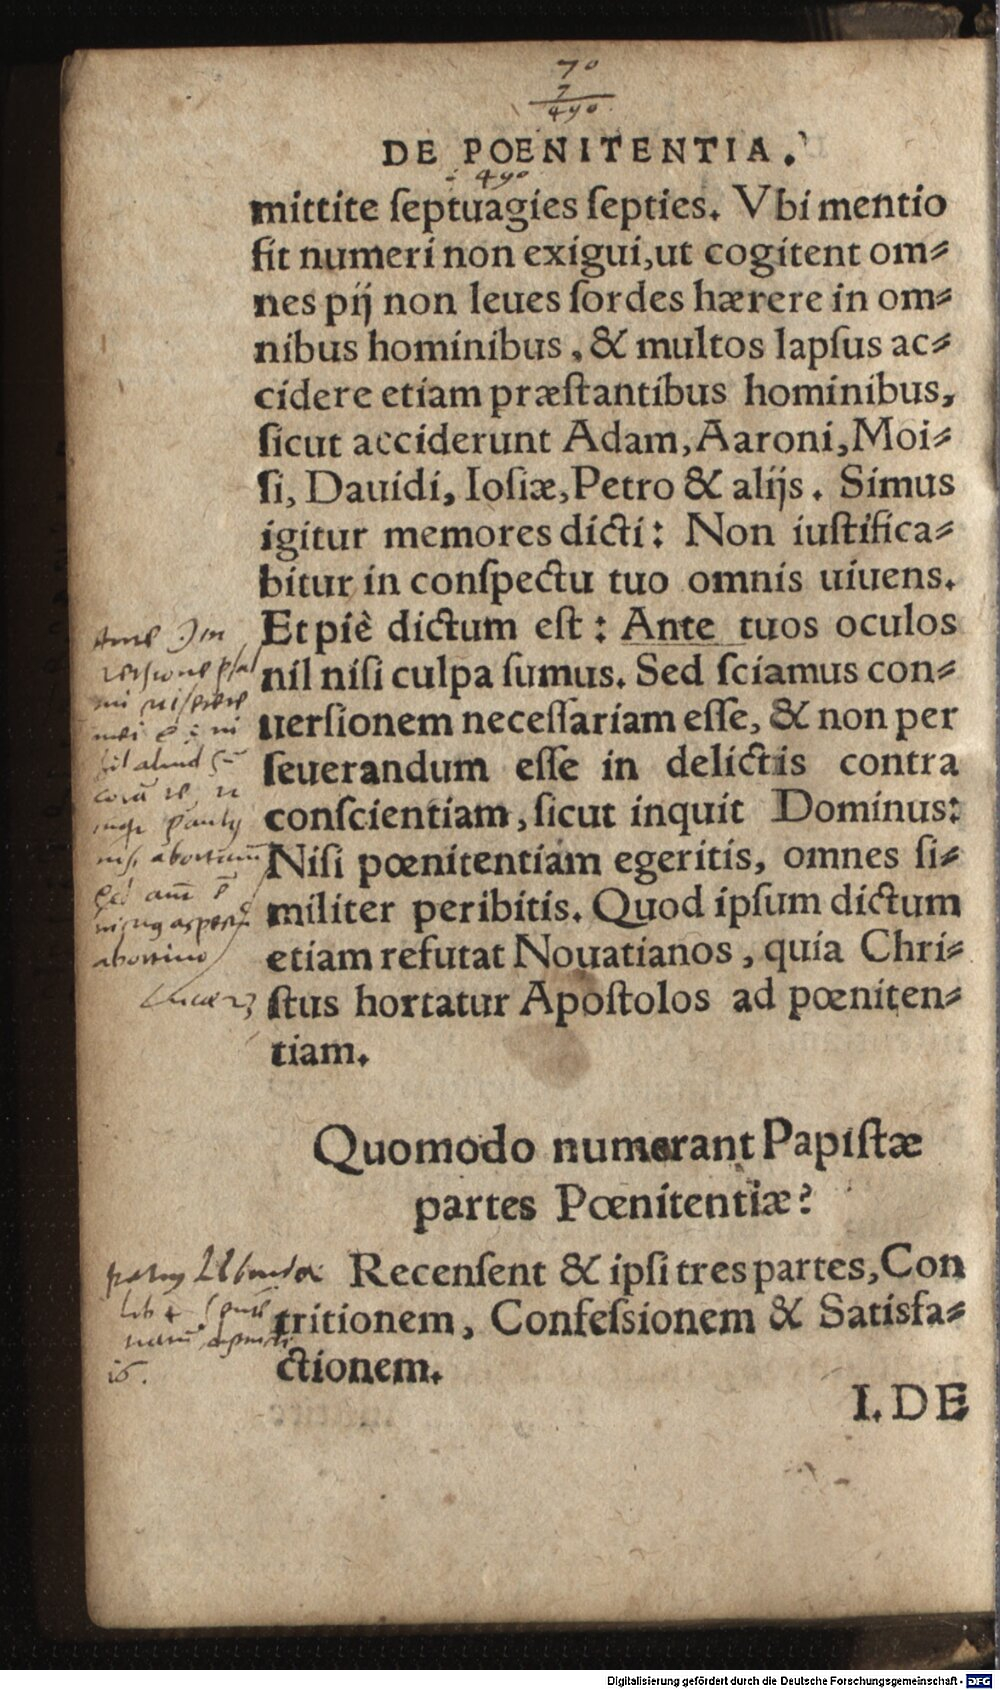 70
7
490
DE POENITENTIA.
490
mittite ſeptuagies ſepties. Vbi mentio
fit numeri non exigui, ut cogitent om⸗
nes pij non leues ſordes hærere in om⸗
nibus hominibus, & multos lapſus ac⸗
cidere etiam præſtantibus hominibus,
ſicut acciderunt Adam, Aaroni, Moi⸗
ſi, Dauidi, Ioſiæ, Petro & alijs. Simus
igitur memores dicti: Non iuſtifica⸗
bitur in conſpectu tuo omnis uiuens.
Et piè dictum eſt: Ante tuos oculos
nil niſi culpa ſumus. Sed ſciamus con⸗
uerſionem neceſſariam eſſe, & non per
ſeuerandum eſſe in delictis contra
conſcientiam, ſicut inquit Dominus:
Niſi pœnitentiam egeritis, omnes ſi⸗
militer peribitis. Quod ipſum dictum
etiam refutat Nouatianos, quia Chri⸗
ſtus hortatur Apoſtolos ad pœniten⸗
tiam.
mei
abortino
Quomodo numerant Papiſtæ
partes Pœnitentiæ?
Recenſent & ipſi tres partes, Con
tritionem, Confeſsionem & Satisfa⸗
ctionem.
lib 4
16.
I. DE
Digitalisierung gefördert durch die Deutsche Forschungsgemeinschaft - DFG